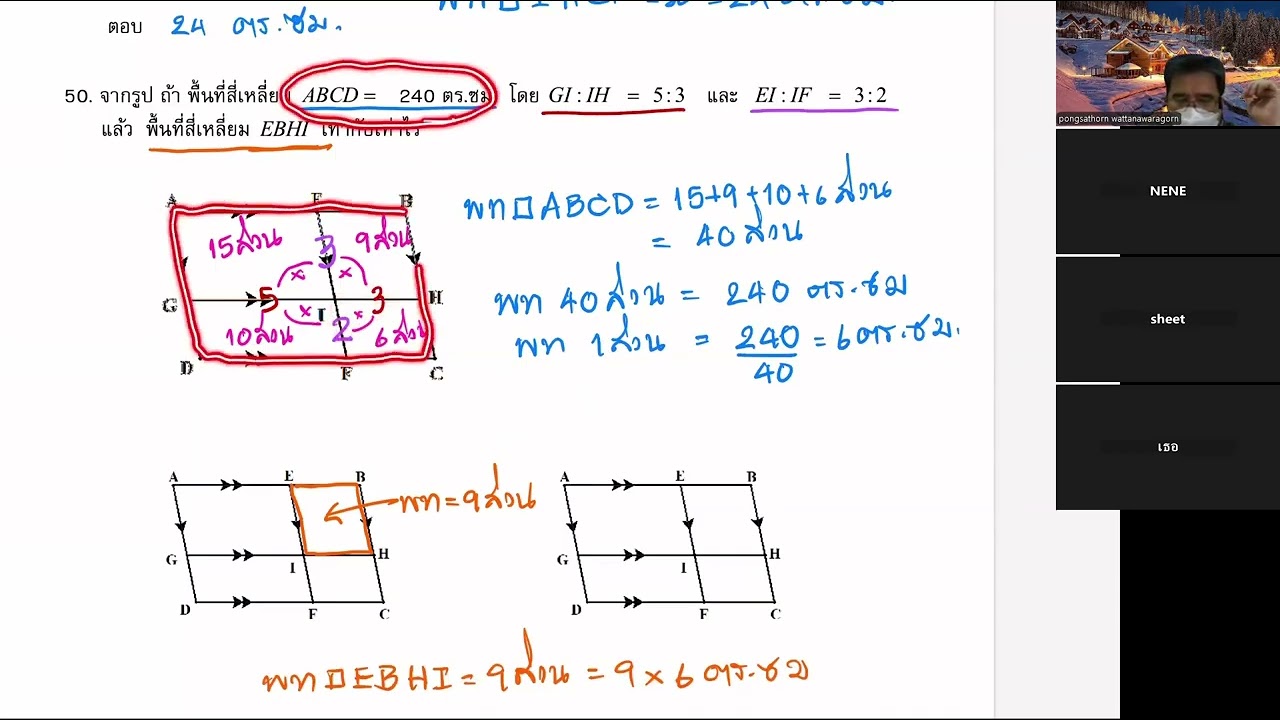 ตอบ 24 ตร.ซม.
50. จากรูป ถ้า พื้นที่สี่เหลี่ย ABCD = 240 ตร.ซม โดย GI : IH = 5:3 และ EI : IF = 3:2
แล้ว พื้นที่สี่เหลี่ยม EBHI เท่ากับเท่าไร
A E B
15ส่วน 3 9ส่วน
G 5 I 3 H
10ส่วน 2 6ส่วน
D F C
พท□ABCD = 15+9+10+6 ส่วน
= 40 ส่วน
พท 40 ส่วน = 240 ตร.ซม
พท 1ส่วน = 240/40 = 6ตร.ซม.
A E B
พท=9ส่วน
G I H
D F C
A E B
G I H
D F C
พท□EBHI = 9ส่วน = 9×6 ตร.ซม
pongsathorn wattanawaragorn
NENE
sheet
เธอ